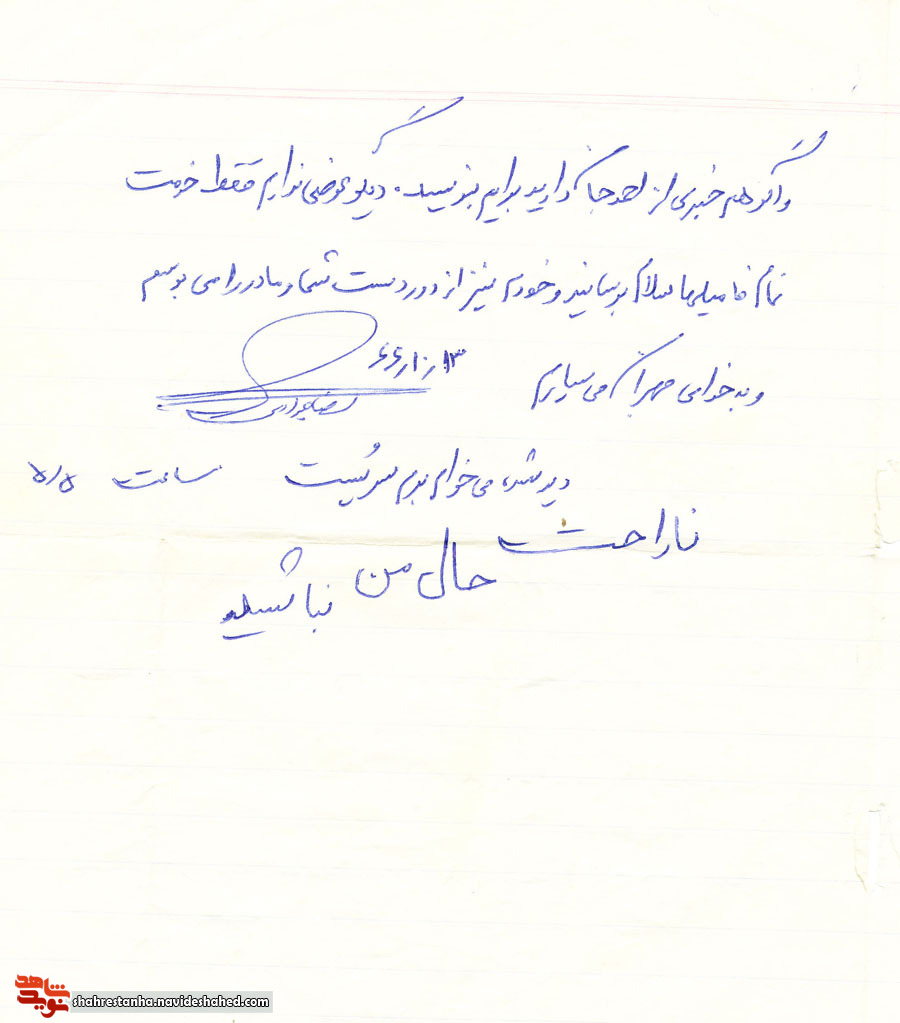 و اگر هم خبری از احمد جان دارید برایم بنویسید. دیگر عرضی ندارم فقط خدمت
تمام فامیلها سلام برسانید و خودم نیز از دور دست شما و مادر را می بوسم
و به خدای مهربان می سپارم ۱۳ر۱۰ر۶۶
دیر شد، می خوام برم سر پُست ساعت ۵ر۵
ناراحت
حال من نباشید
نوید شاهد
shahrestanha.navideshahed.com